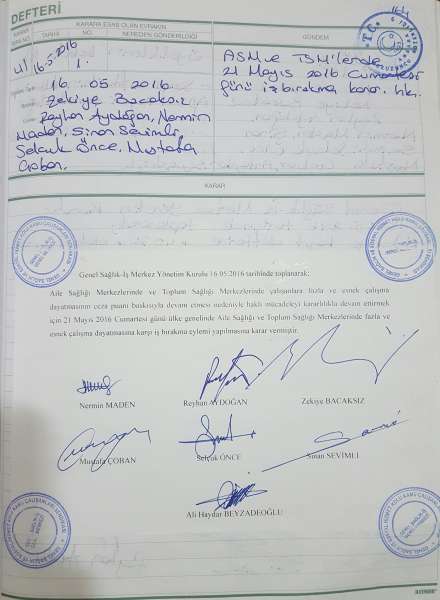 DEFTERİ
KARARA ESAS OLAN EVRAKIN
GÜNDEM
KARAR
TARİHİ
NO.
NEREDEN GÖNDERİLDİĞİ
41
16.5.2016
1.
ASM ve TSM'lerde
21 Mayıs 2016 Cumartesi
günü iş bırakma kararı hk.
16.05.2016
Zekiye Bacaksız
Reyhan Aydoğan, Nermin
Maden, Sinan Sevimli,
Selçuk Önce, Mustafa
Çoban.
KARAR
Genel Sağlık-İş Merkez Yönetim Kurulu 16.05.2016 tarihinde toplanarak;
Aile Sağlığı Merkezlerinde ve Toplum Sağlığı Merkezlerinde çalışanlara fazla ve esnek çalışma
dayatmasının ceza puanı baskısıyla devam etmesi nedeniyle haklı mücadeleyi kararlılıkla devam ettirmek
için 21 Mayıs 2016 Cumartesi günü ülke genelinde Aile Sağlığı ve Toplum Sağlığı Merkezlerinde fazla ve
esnek çalışma dayatmasına karşı iş bırakma eylemi yapılmasına karar vermiştir.
Nermin MADEN
Reyhan AYDOĞAN
Zekiye BACAKSIZ
Mustafa ÇOBAN
Selçuk ÖNCE
Sinan SEVİMLİ
Ali Haydar BEYZADEOĞLU